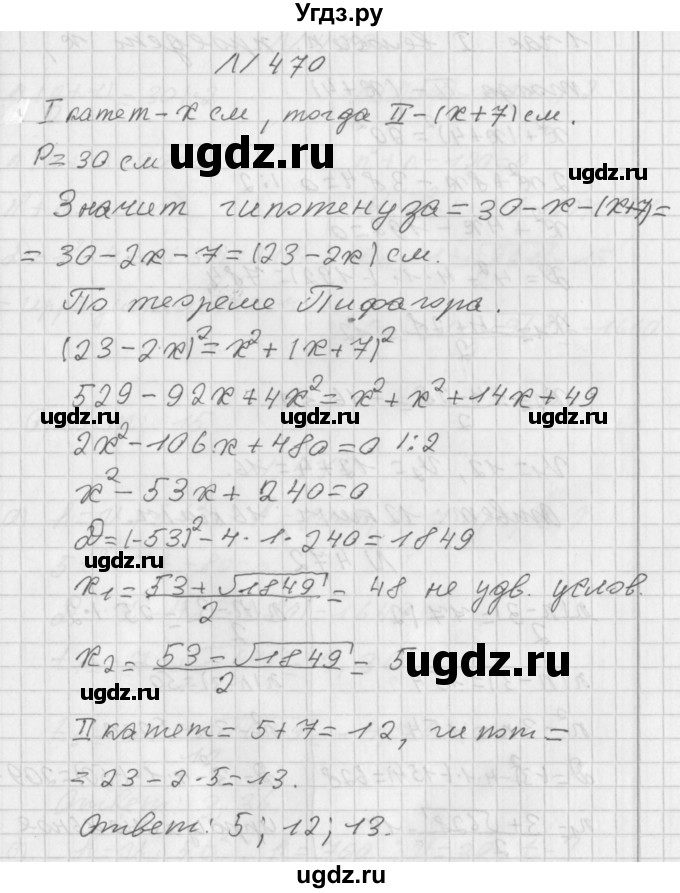 Угдз.ру
№ 470
I катет - x см, тогда II - (x+7) см.
P = 30 см
ugdz.ru
ugdz.ru
Значит гипотенуза = 30-x-(x+7)=
= 30-2x-7=(23-2x) см.
По теореме Пифагора.
(23-2x)²=x²+(x+7)²
529-92x+4x²=x²+x²+14x+49
ugdz.ru
ugdz.ru
2x²-106x+480=0 |:2
x²-53x+240=0
D=(-53)²-4·1·240=1849
x₁=(53+√1849)/2=48 не удв. услов.
x₂=(53-√1849)/2=5
ugdz.ru
II катет=5+7=12, гипот=
=23-2·5=13.
Ответ: 5; 12; 13.
ugdz.ru
ugdz.ru